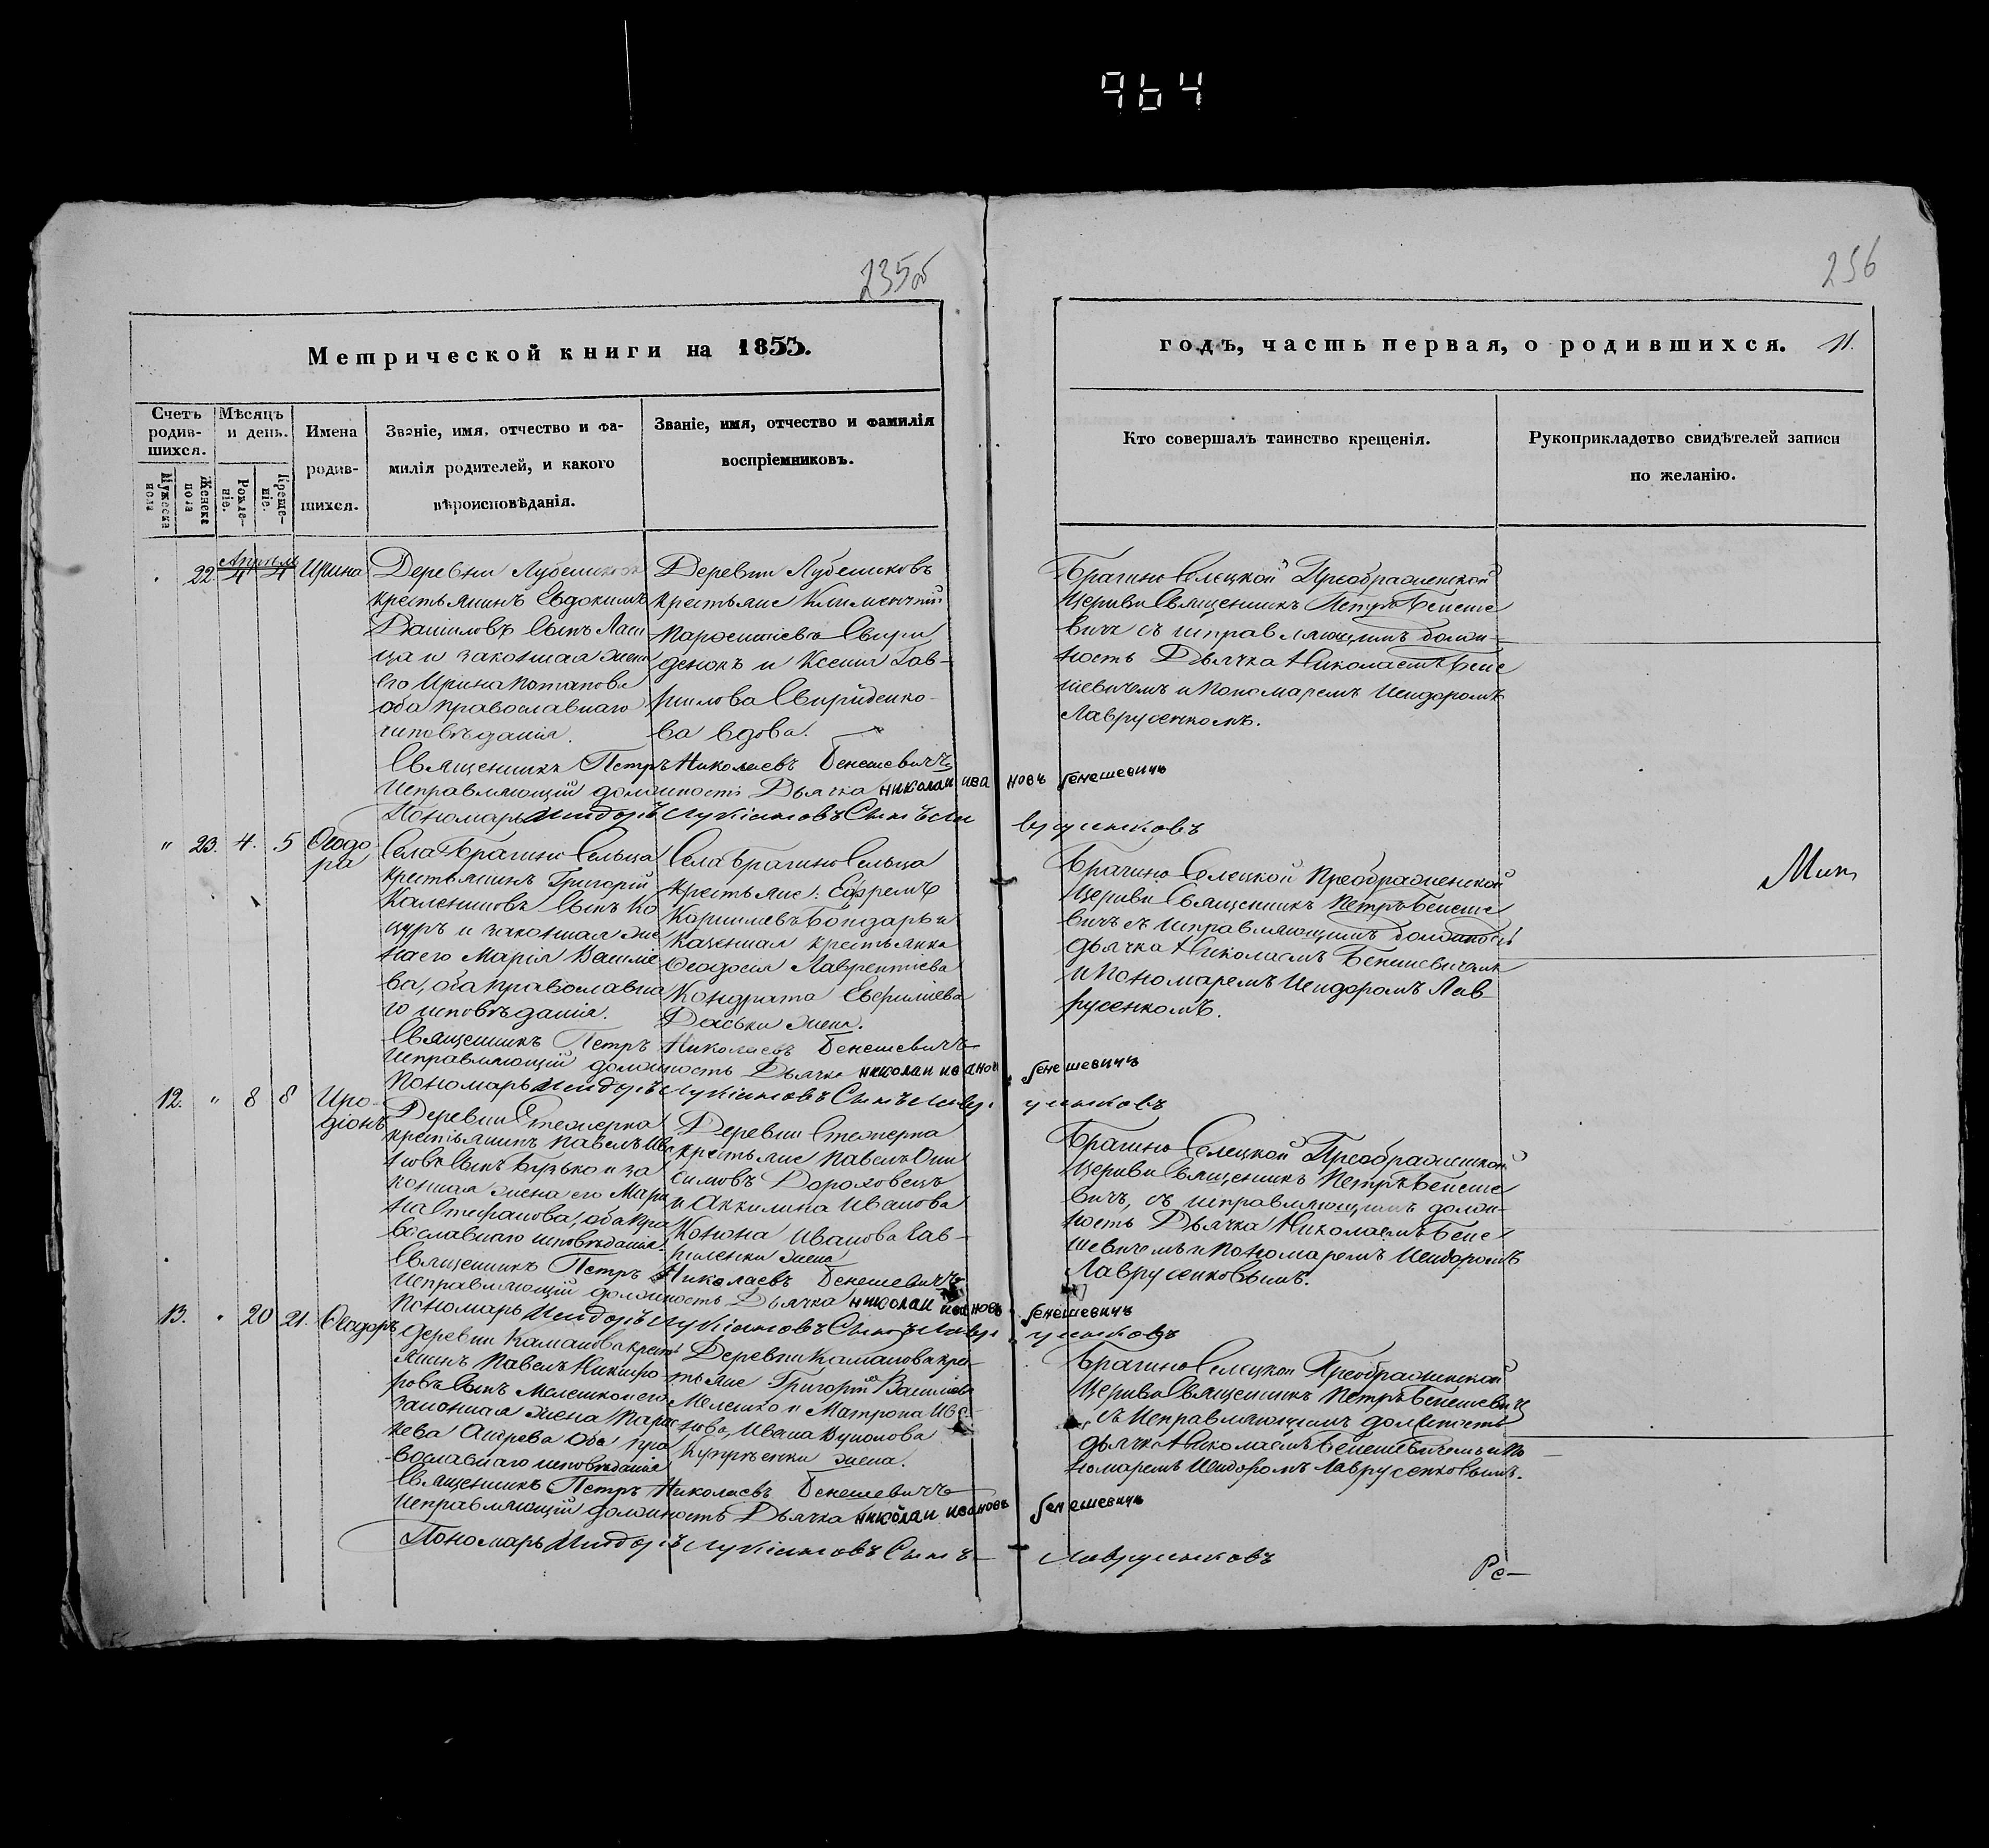 964
235об
256
Метрической книги на 1855.
годъ, часть первая, о родившихся. 11.
Счетъ родив-шихся.
Мѣсяцъ и день.
Имена родив-шихся.
Званіе, имя, отчество и фа-
милія родителей, и какого
вѣроисповѣданія.
Званіе, имя, отчество и фамилія
воспріемниковъ.
Кто совершалъ таинство крещенія.
Рукоприкладство свидѣтелей записи
по желанію.
Мужеска пола
Женска пола
Рожде-ніе.
Креще-ніе.
22. Апрѣль 4 4 Ирина
Деревни
крестьянинъ Евдокимъ
Даниловъ сынъ
ца и законная жена
его Ирина Потапова
оба православнаго
исповѣданія.
Деревни
крестьяне
и Ксенія Гав-
рилова Свириденко-
ва вдова.
Брагино Селецкой Преображенской
Церкви Священникъ Петръ Бенеше
вичъ съ исправляющимъ долж-
ность Дьячка Николаемъ Бене
шевичемъ и Пономаремъ Исидоромъ
Лаврусенкомъ.
Священникъ Петръ Николаевъ Бенешевичъ
Исправляющій должность Дьячка николаи ивановъ бенешевичъ
Пономарь Исидоръ Лукіановъ Сынъ
" 23. 4. 5 Ѳеодо
ра
Села Брагино Сельца
крестьянинъ Григорій
сынъ Ко
цуръ и законная же
на его Марія Василіе
ва, оба православна
го исповѣданія.
Села Брагино Сельца
крестьяне: Ефремъ
Бондарь и
Казенная крестьянка
Ѳеодосія Лаврентіева
Кондрата
жена.
Брагино Селецкой Преображенской
Церкви Священникъ Петръ Бенеше
вичъ съ исправляющимъ должность
дьячка Николаемъ Бенешевичемъ
и Пономаремъ Исидоромъ Лав-
русенкомъ.
Священникъ Петръ Николаевъ Бенешевичъ
Исправляющій должность Дьячка николаи иванов бенешевичъ
Пономарь Исидоръ Лукіановъ Сынъ
12. " 8 8 Иро-
діонъ
Деревни
крестьянинъ Павелъ Ива
новъ сынъ и за
конная жена его Мари
на Стефанова, оба пра
вославнаго исповѣданія.
Деревни
крестьяне Павелъ Они
симовъ Дороховецъ
и Акилина Иванова
Конона Иванова Гав-
жена
Брагино Селецкой Преображенской
Церкви Священникъ Петръ Бенеше
вичъ, съ исправляющимъ долж-
ность Дьячка Николаемъ Бене
шевичемъ и Пономаремъ Исидоромъ
Лаврусенковымъ.
Священникъ Петръ Николаевъ Бенешевичъ
Исправляющій должность Дьячка николаи ивановъ бенешевичъ
Пономарь Исидоръ Лукіановъ Сынъ
13. " 20 21. Ѳеодоръ
Деревни Каманова крест
янинъ Павелъ Никифо-
ровъ сынъ Мелешко и его
законная жена Парас
кева Андреева оба пра
вославнаго исповѣданія
Деревни Каманова крес-
тьяне Григорій Василіевъ
Мелешко и Матрона Ива-
нова, Ивана
жена.
Брагино Селецкой Преображенской
Церкви Священникъ Петръ Бенешевичъ
съ Исправляющимъ должность
дьячка Николаемъ Бенешевичемъ и По
номаремъ Исидоромъ Лаврусенковымъ.
Священникъ Петръ Николаевъ Бенешевичъ
Исправляющій должность Дьячка николаи ивановъ бенешевичъ
Пономарь Исидоръ Лукіановъ Сынъ Лаврусенковъ
Ре-